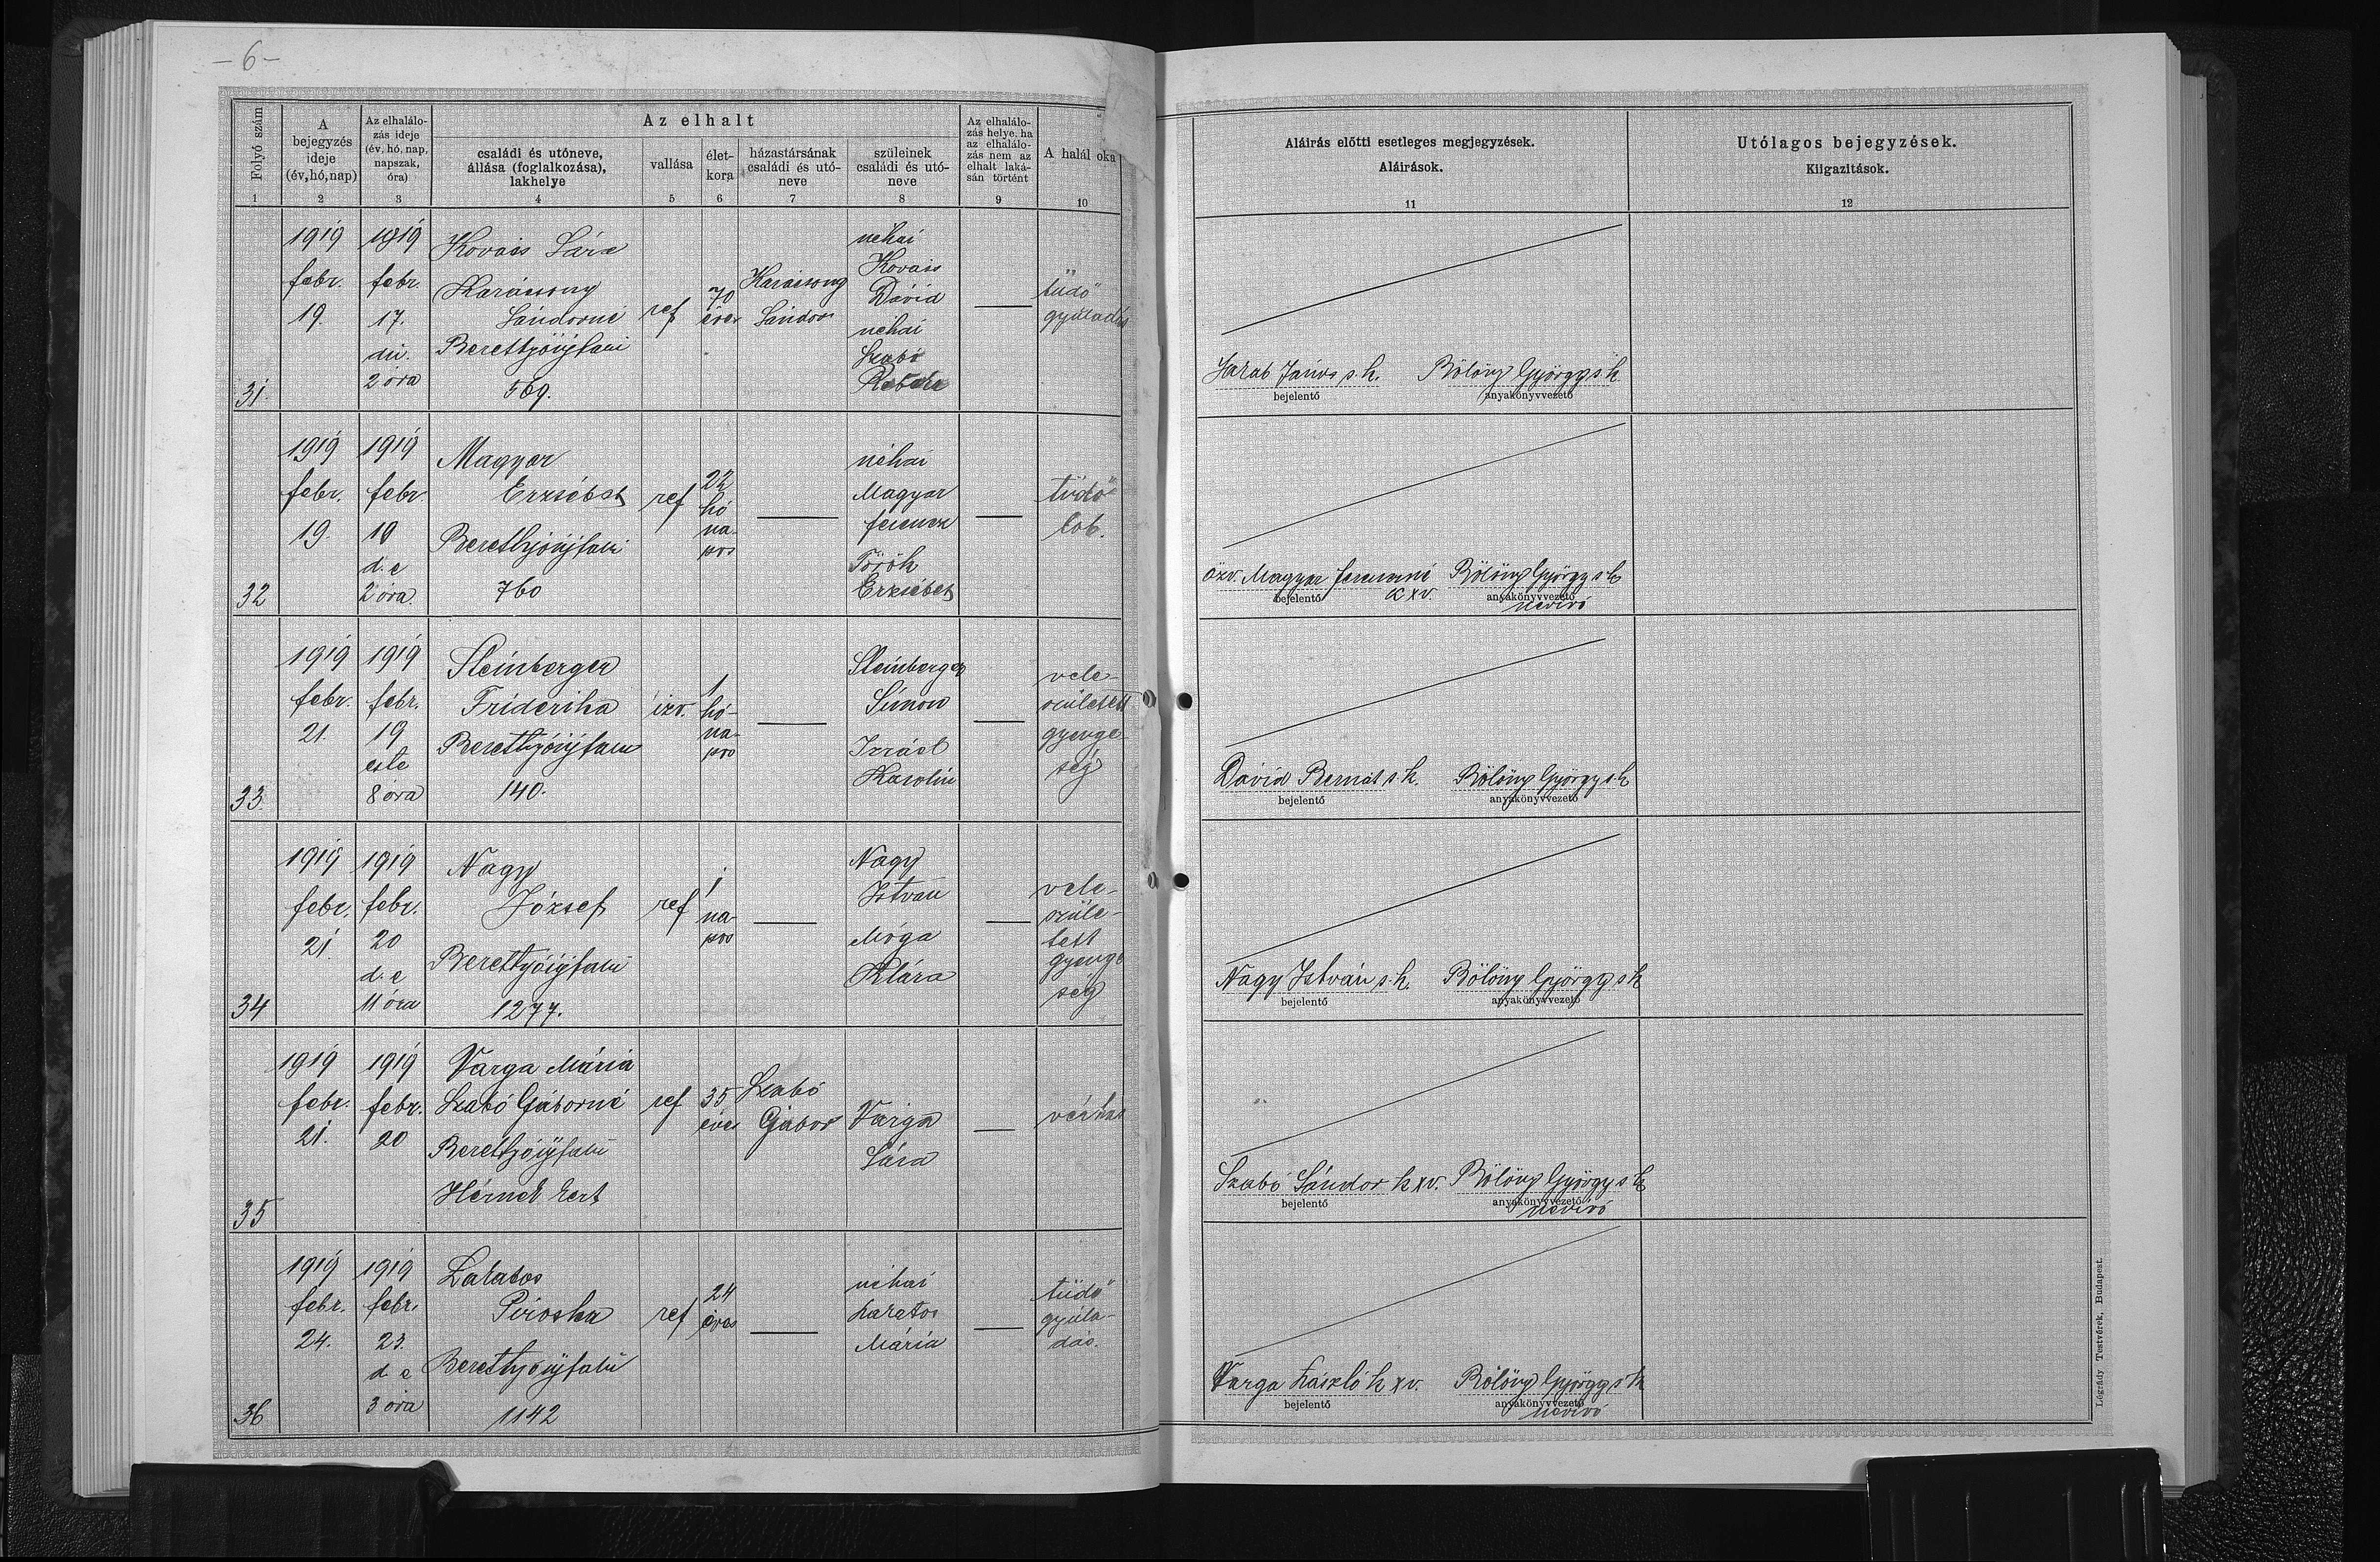 - 6 -
Folyó szám
A
bejegyzés
ideje
(év, hó, nap)
Az elhalálo-
zás ideje
(év, hó, nap,
napszak,
óra)
Az elhalt
családi és utóneve,
állása (foglalkozása),
lakhelye
vallása
élet-
kora
házastársának
családi és utó-
neve
szüleinek
családi és utó-
neve
Az elhalálo-
zás helye, ha
az elhalálo-
zás nem az
elhalt laká-
sán történt
A halál oka
1 2 3 4 5 6 7 8 9 10
Aláírás előtti esetleges megjegyzések.
Aláírások.
11
Utólagos bejegyzések.
Kiigazítások.
12
31.
1919
febr.
19.
1919
febr.
17.
du.
2 óra
Kovács Sára
Karácsony
Sándorné
Berettyóújfalu
569.
ref
70
éves
Karácsony
Sándor
néhai
Kovács
Dávid
néhai
Szabó
tüdő
gyuladás
Jakab János s.k.
bejelentő
Bölöny György s.k.
anyakönyvvezető
32
1919
febr.
19.
1919
febr
10
d. e
2 óra.
Magyar
Erzsébet
Berettyóújfalu
760
ref
22
hó
na-
pos
néhai
Magyar
ferencz
Török
Erzsébet
tüdő
lob.
özv. Magyar ferencné
k x v.
bejelentő
Bölöny György s k
anyakönyvvezető
névíró
33.
1919
febr.
21.
1919
febr.
19
este
8 óra
Steinberger
Friderika
Berettyóújfalu
140.
izr.
1
hó-
na-
pos
Steinberger
Simon
Izráel
Karolin
vele-
született
gyenge
ség
Dávid Bernát s.k.
bejelentő
Bölöny György s.k
anyakönyvvezető
34
1919
febr.
21.
1919
febr.
20
d. e
11 óra
Nagy
József
Berettyóújfalu
1277.
ref
1
na-
pos
Nagy
István
Móga
Klára
vele-
szüle-
tett
gyenge
ség
Nagy István s.k.
bejelentő
Bölöny György s k
anyakönyvvezető
35
1919
febr.
21.
1919
febr.
20
Varga Mária
Szabó Gáborné
Berettyóújfalu
ref
35
éves
Szabó
Gábor
Varga
Sára
vérhas
Szabó Sándor k x v.
bejelentő
Bölöny György s k
anyakönyvvezető
névíró
36
1919
febr.
24.
1919
febr.
23.
d. e
3 óra
Lakatos
Piroska
Berettyóújfalu
1142
ref
24
éves
néhai
Lakatos
Mária
tüdő
gyula-
dás.
Varga László k x v.
bejelentő
Bölöny György s k
anyakönyvvezető
névíró
Légrády Testvérek, Budapest.